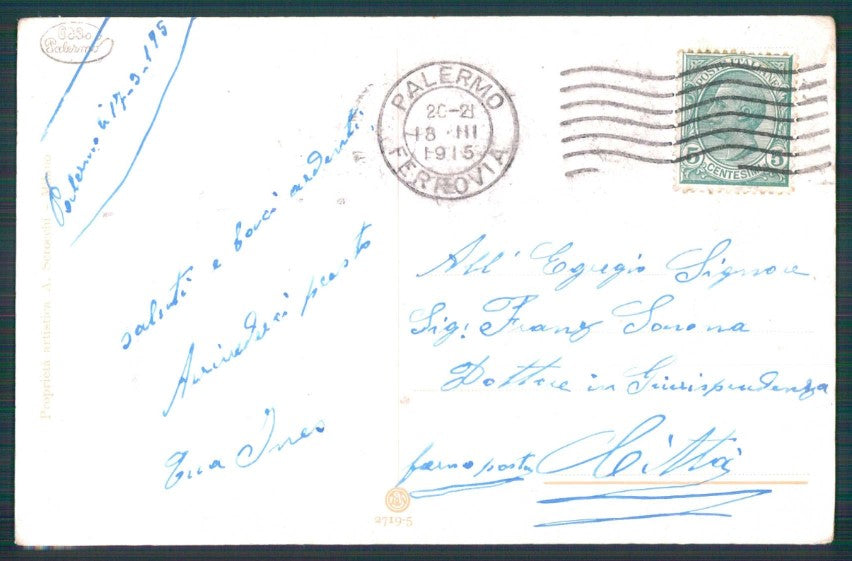 Palermo
Palermo li 17-3-915
saluti e baci ardenti
Arrivederci presto
Tua Ines
Proprietà artistica A.
PALERMO
20-21
18 III
1915
FERROVIA
POSTE ITALIANE
5 CENTESIMI 5
All' Egregio Signore
Sig: Franz
Dottore in Giurisprudenza
fermo posta Città
2719-5